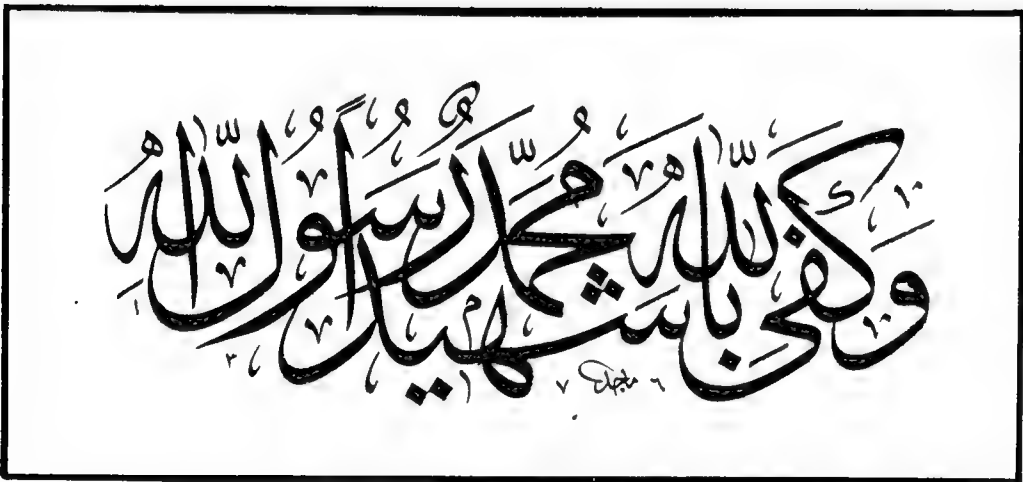 وَكَفَىٰ بِاللّٰهِ شَهِيداً مُحَمَّدٌ رَسُولُ اللّٰهِ